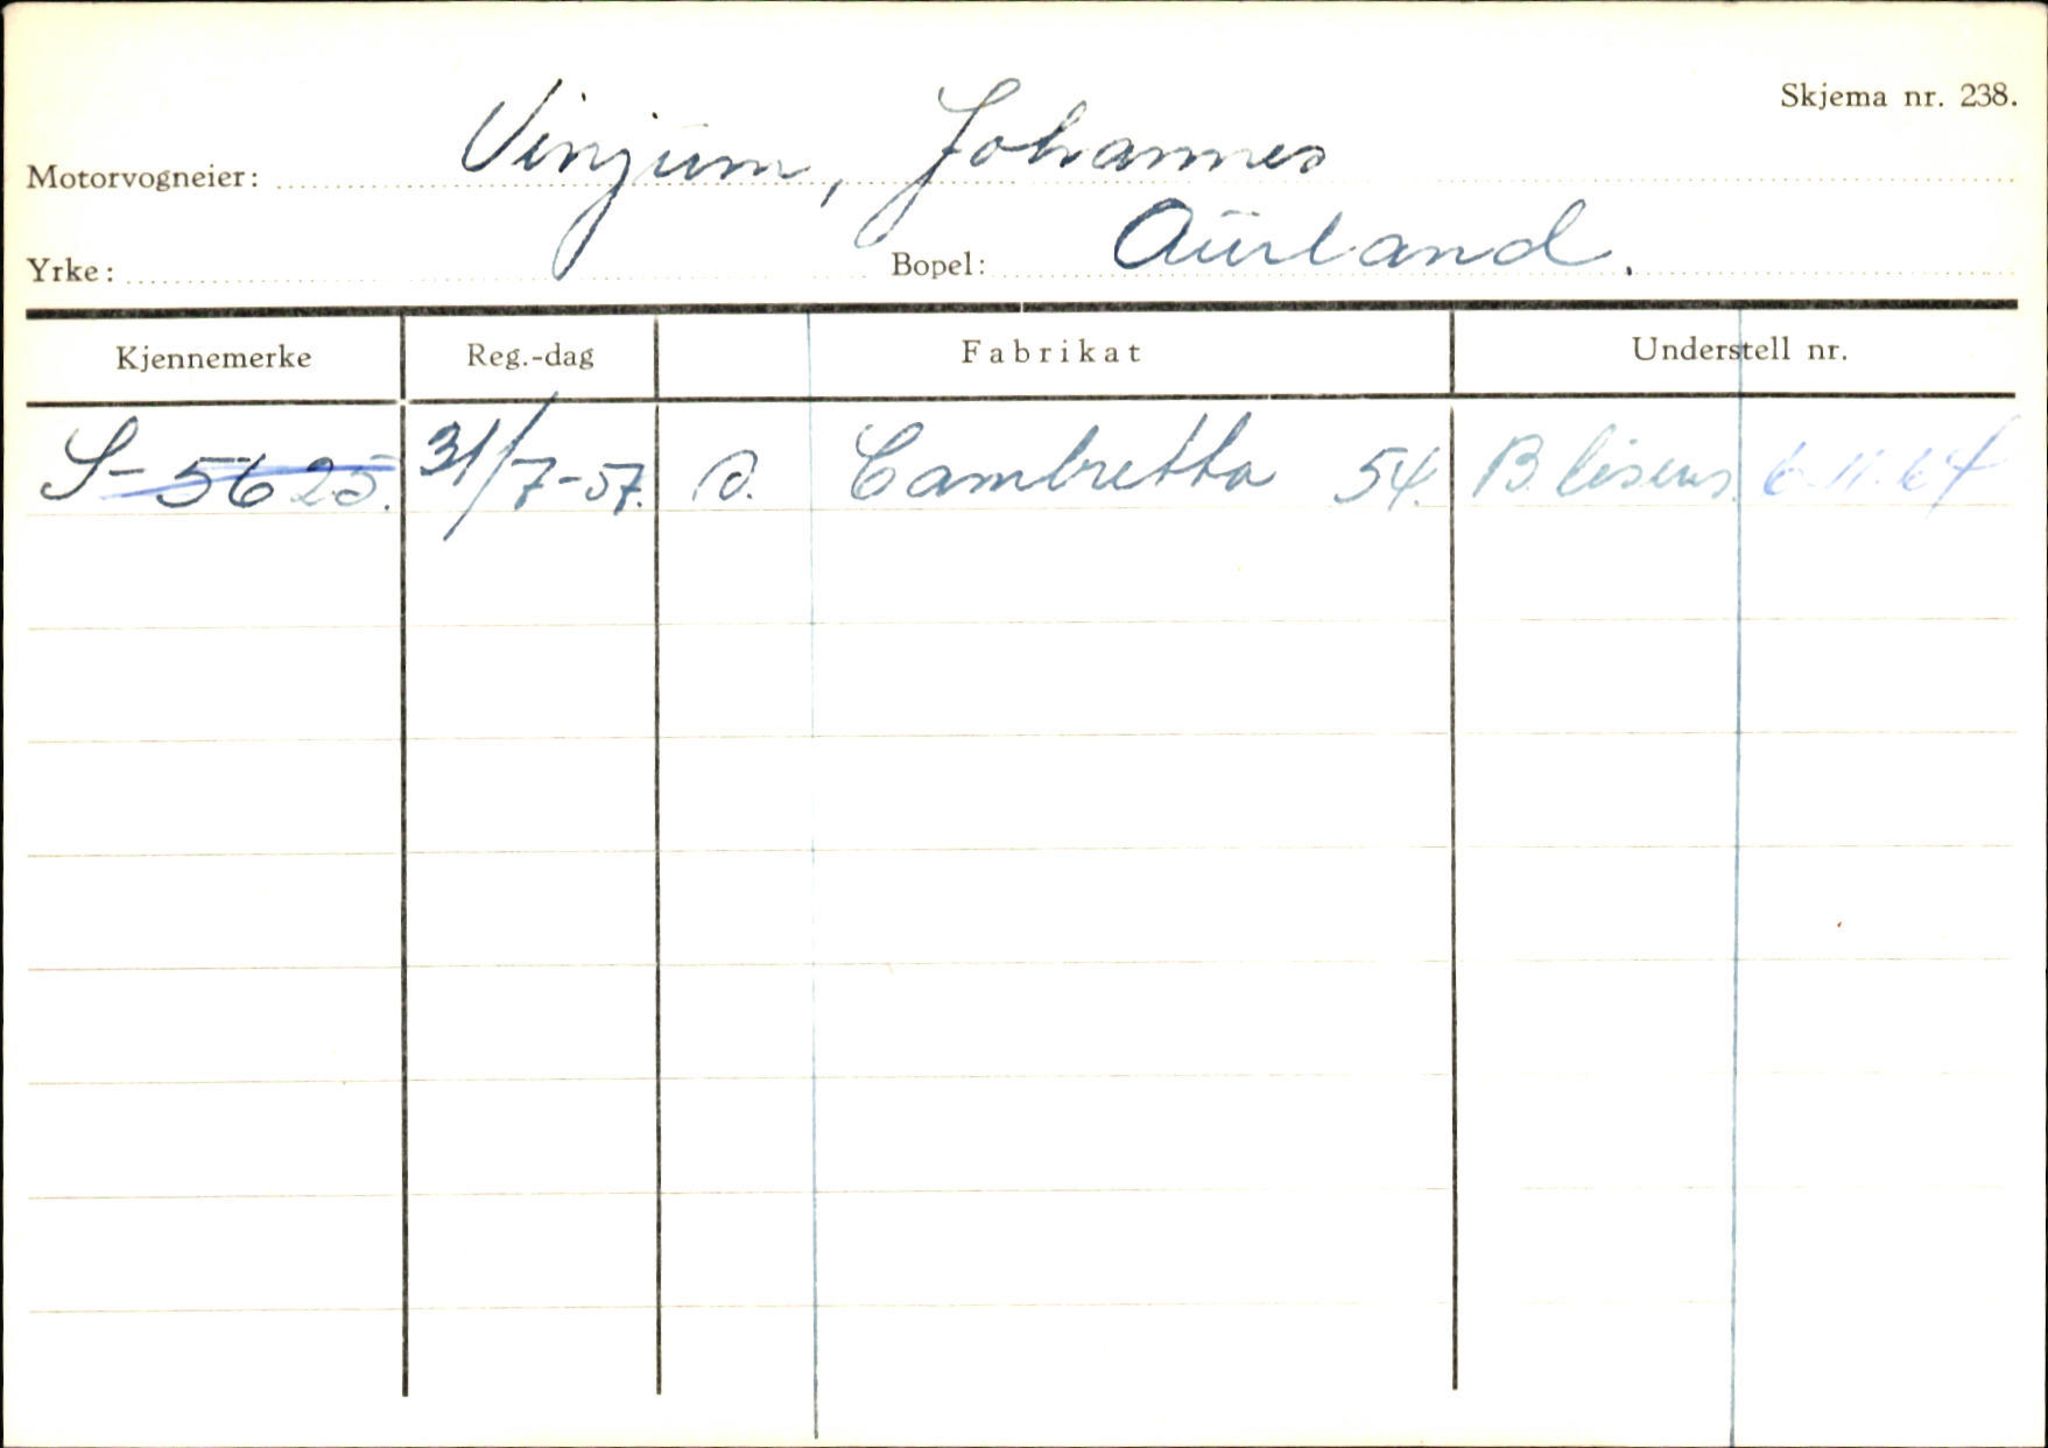 Skjema nr. 238.
Motorvogneier: Vinjum, Johannes
Yrke: Bopel: Aurland.
Kjennemerke Reg.-dag Fabrikat Understell nr.
S-5625. 31/7-57. Cambretta 54. B lisens. 6.11.64